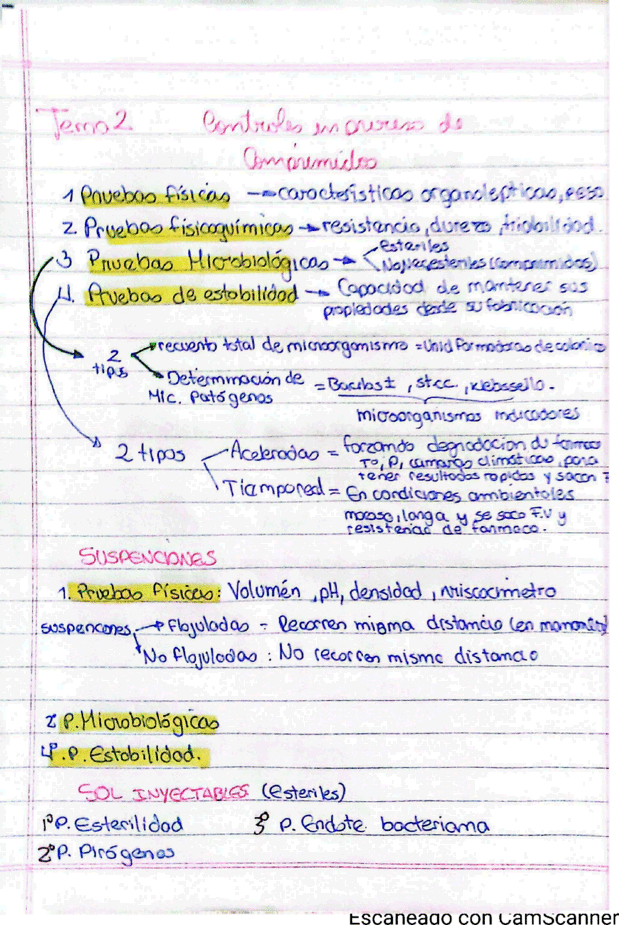 Tema 2 Controles in proceso de
Comprimidos
1 Pruebas físicas → características organolepticas, peso
2. Pruebas fisicoquímicas → resistencia, dureza, friabilidad.
3 Pruebas Microbiológicas → Esteriles
No Nec esteriles (comprimidos)
4. Pruebas de estabilidad → Capacidad de mantener sus
propiedades desde su fabricación
2 tipos
recuento total de microorganismo = Unid formadoras de colonia
Determinación de Mic. Patógenos = Bacilos ±, stcc, klebssella.
microorganismos indicadores
2 tipos
Aceleradas = forzando degradacion du farmaco
Tº, P, camaras climáticas, para
tener resultados rapidos y sacan F
Tiempo real = En condiciones ambientales
larga y se saca F.V y
resistencia de farmaco.
SUSPENCIONES
1. Pruebas Físicas: Volumén, pH, densidad, viscocimetro
suspenciones → Flojuladas = Recorren misma distancia (en
No Flojuladas: No recorren misma distancia
2 P. Microbiológicas
4º. P. Estabilidad.
SOL INYECTABLES (esteriles)
1º P. Esterilidad 3º P. Endote bacteriana
2º P. Pirógenos
Escaneado con CamScanner